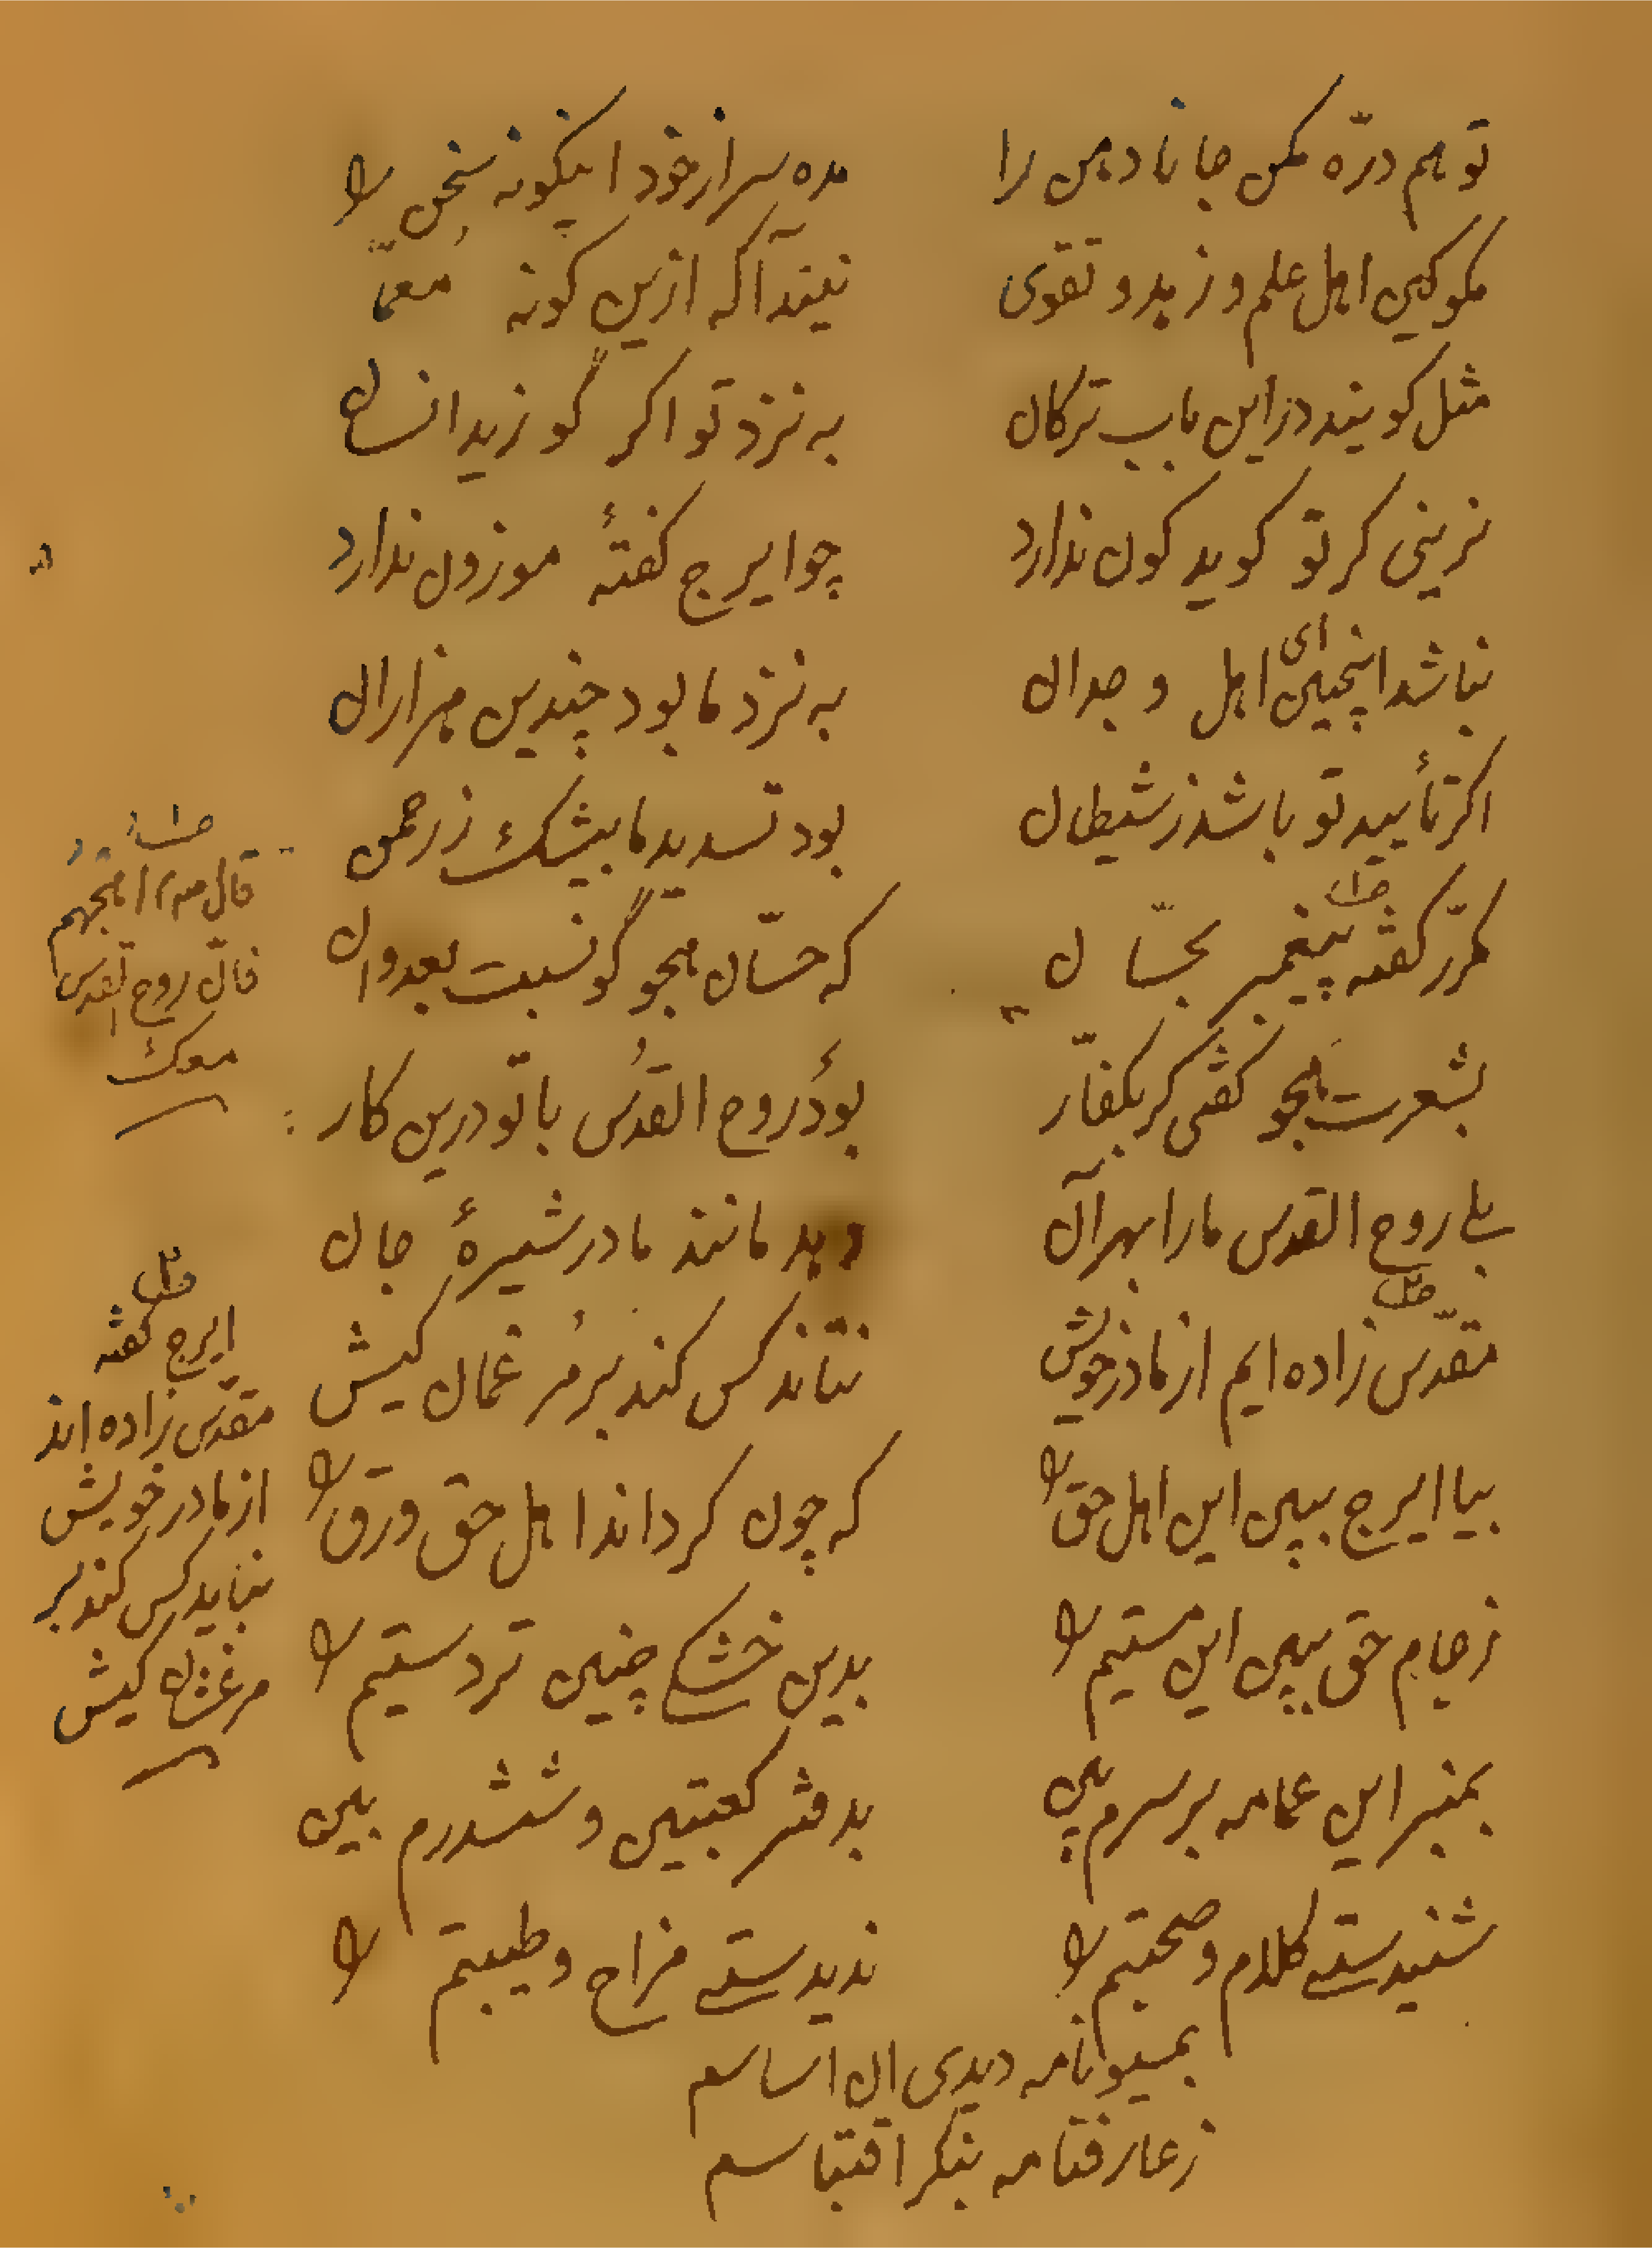 تو هم درّه مکن جانا دهن را
مده سر از خود اینگونه سخن را
مگو کین اهل علم و زهد و تقوی
نیند آگه ازین گونه مُعمّا
مثل گویند در این باب ترکان
به نزد تو اگر گوزید انسان
نرینی گر تو گوید کون ندارد
چو ایرج گفتهٔ موزون ندارد
نباشد اینچنین ای اهل وجدان
به نزد ما بود چندین هزاران
اگر تأیید تو باشد ز شیطان
بود تسدید ما بیشک ز رحمن
مکرّر گفته پیغمبر بحسّان
که حسّان هجو گو نسبت بعدوان
بشعرت هجو گفتی گر بکفّار
بوَد روح القدُس با تو درین کار
بلی روح القدس ما را بهر آن
دهد مانند مادر شیرهٔ جان
مقدّس زاده ایم از مادر خویش
نتاند کس کند بر مرغمان کیش
بیا ایرج ببین این اهل حق را
که چون گرداند اهل حق ورق را
ز جام حق ببین این مستیم را
بدین خشکی چنین تردستیم را
بمنبر این عمامه بر سرم بین
بدفتر کعبتین و ششدرم بین
شنیدستی کلام و صحبتم را
ندیدستی مزاح و طیبتم را
دیدی ان اساسم
ز عارفنامه بنگر اقتباسم
قال اهجهم
فانّ روح القدس
معک
ایرج گفته
مقدّس زاده اند
از مادر خویش
نباید کس کند بر
مرغشان کیش